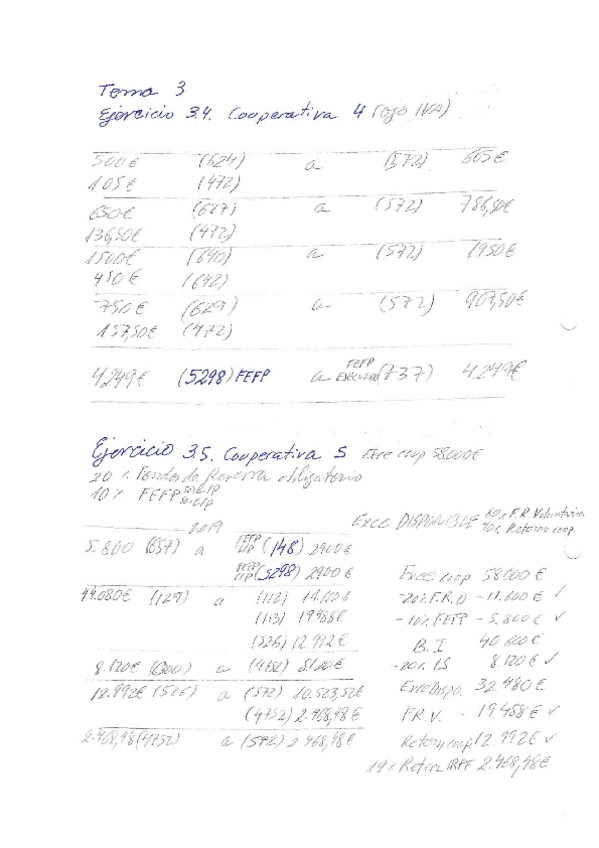 Tema 3
Ejercicio 3.4. Cooperativa 4 (ojo IVA)
500€ (624) a (572) 605€
105€ (472)
650€ (627) a (572) 786,50€
136,50€ (472)
1500€ (640) a (572) 1950€
450€ (642)
750€ (629) a (572) 907,50€
157,50€ (472)
4.249€ (5298) FEFP a FEFP (737) 4.249€
Ejercicio 3.5. Cooperativa 5 Exce coop 58000€
20% Fondo de Reserva obligatorio
10% FEFP
2019
EXCE DISPONIBLE 60% F.R Voluntaria
40% Retorno coop
5.800 (657) a FEFP L/P (148) 2900€
FEFP C/P (5298) 2900€
Exce coop 58000€
(129) a (112) 11.600€
-20% F.R.O -11.600€ ✓
(113) 19.488€
-10% FEFP -5.800€ ✓
(526) 12.992€
B.I 40.600€
8.120€ a (4752) 8120€
-20% IS 8.120€ ✓
12.992€ (526) a (572) 10.523,52€
Exce Dispo. 32.480€
(4752) 2.468,48€
F.R V. - 19.488€ ✓
2.468,48 (4752) a (572) 2.468,48€
Retorno coop 12.992€ ✓
19% Reten IRPF 2.468,48€